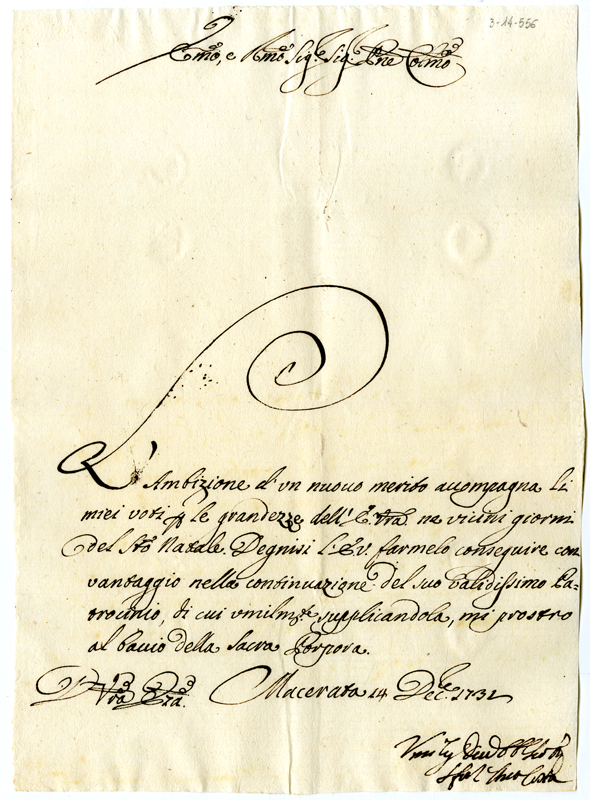 3-14-556
Emo, e Rmo Sigre Sigr Pne Colmo
L'Ambizione d'vn nuouo merito accompagna li
miei voti p le grandezze dell'E. Vra ne vicini giorni
del Sto Natale. Degnisi l'E.V. farmelo conseguire con
vantaggio nella continuazione del suo validissimo Pa=
trocinio, di cui vmilmte supplicandola, mi prostro
al bacio della Sacra Porpora.
D. Vra Eza. Macerata 14 Dece. 1731